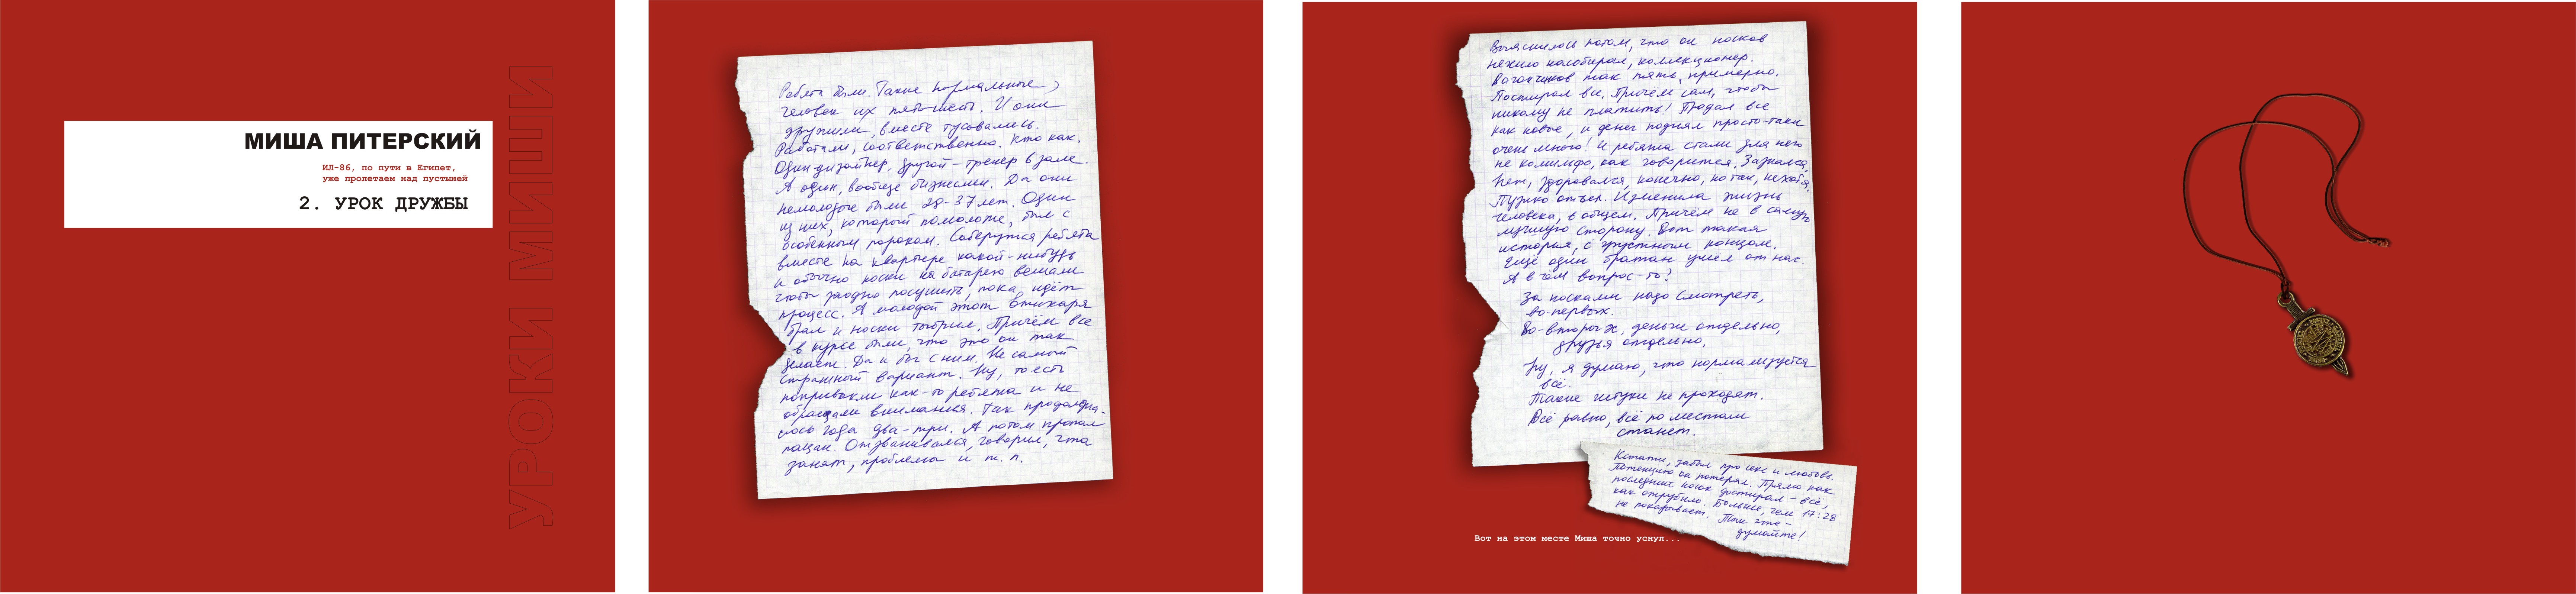 МИША ПИТЕРСКИЙ
ИЛ-86, по пути в Египет,
уже пролетаем над пустыней
2. УРОК ДРУЖБЫ
УРОКИ МИШИ
Ребята были. Такие нормальные,
человек их пять-шесть. И они
дружили, вместе тусовались.
Работали, соответственно. Кто как.
Один дизайнер, другой – тренер в зале.
А один, вообще бизнесмен. Да они
немолодые были 28-37 лет. Один
из них, который помоложе, был с
особенным пороком. Соберутся ребята
вместе на квартире какой-нибудь
и обычно носки на батарею вешали
чтобы заодно посушить, пока идёт
процесс. А молодой этот втихаря
брал и носки тырил. Причём все
в курсе были, что это он так
делает. Да и бог с ним. Не самый
страшный вариант. Ну, то есть
попривыкли как-то ребята и не
обращали внимания. Так продолжа-
лось года два-три. А потом пропал
пацан. Отзванивался, говорил, что
занят, проблемы и т. п.
Выяснилось потом, что он носков
нехило насобирал, коллекционер.
Вагончиков так пять, примерно.
Постирал все. Причём сам, чтобы
никому не платить! Продал все
как новые, и денег поднял просто-таки
очень много! И ребята стали для него
не комильфо, как говорится. Зазнался.
Нет, здоровался, конечно, но так, нехотя.
Пузико отъел. Изменила жизнь
человека, в общем. Причём не в самую
лучшую сторону. Вот такая
история, с грустным концом.
Ещё один братан ушёл от нас.
А в чём вопрос-то?
За носками надо смотреть,
во-первых.
Во-вторых, деньги отдельно,
друзья отдельно.
Ну, я думаю, что нормализуется
всё.
Такие штуки не проходят.
Всё равно, всё по местам
станет.
Кстати, забыл про секс и любовь.
Потенцию он потерял. Прямо как
последний носок достирал – всё,
как отрубило. Больше, чем 17:28
не показывает. Так что –
думайте!
Вот на этом месте Миша точно уснул...